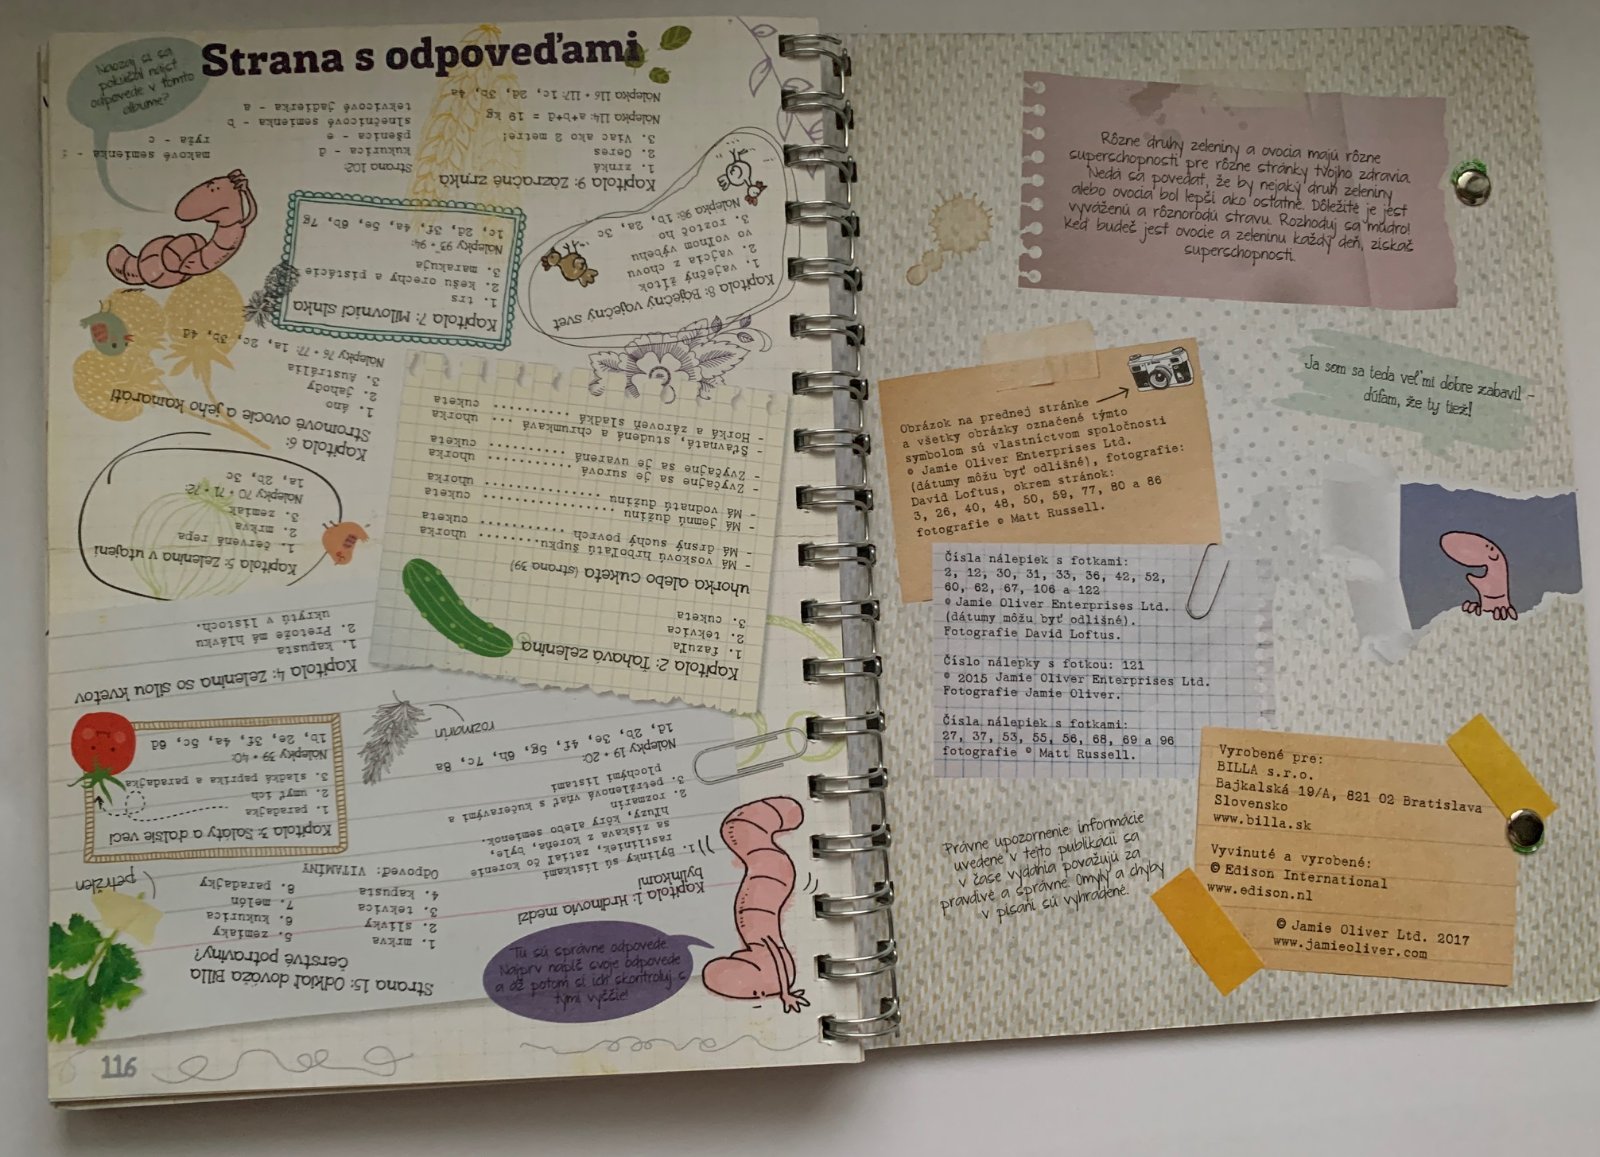 Naozaj si sa
pokúšal nájsť
odpovede v tomto
albume?
Strana s odpoveďami
Tu sú správne odpovede.
Najprv napíš svoje odpovede
a až potom si ich skontroluj s
tými vyššie!
Strana 15: Odkiaľ dováža Billa
čerstvé potraviny?
1. mrkva
2. slivky
3. tekvica
4. kapusta
5. zemiaky
6. kukurica
7. melón
8. paradajky
Odpoveď: VITAMÍNY
petržlen
Kapitola 1: Hrdinovia medzi
bylinkami
1. Bylinky sú lístkami
rastliniek, zatiaľ čo korenie
sa získava z koreňa, byle,
hľuzy, kôry alebo semienok.
2. rozmarín
3. petržlenová vňať s kučeravými a
plochými listami
Nálepky 19 + 20:
1d, 2b, 3e, 4f, 5g, 6h, 7c, 8a
rozmarín
Kapitola 3: Šaláty a ďalšie veci
1. paradajka
2. umyť ich
3. sladká paprika a paradajka
Nálepky 39 + 40:
1b, 2e, 3f, 4a, 5c, 6d
Kapitola 2: Ťahavá zelenina
1. fazuľa
2. tekvica
3. cuketa
uhorka alebo cuketa (strana 39)
- Má voskovú hrboľatú šupku........ uhorka
- Má drsný suchý povrch .......... cuketa
- Má jemnú dužinu ................ cuketa
- Má vodnatú dužinu .............. uhorka
- Zvyčajne sa je surová........... uhorka
- Zvyčajne sa je uvarená ......... cuketa
- Šťavnatá, studená a chrumkavá ... uhorka
- Horká a zároveň sladká .......... cuketa
Kapitola 4: Zelenina so silou kvetov
1. kapusta
2. Pretože má hlávku
ukrytú v listoch.
Kapitola 5: Zelenina v utajení
1. červená repa
2. mrkva
3. zemiak
Nálepky 70 + 71 + 72:
1a, 2b, 3c
Kapitola 6:
Stromové ovocie a jeho kamaráti
1. áno
2. jahody
3. Austrália
Nálepky 76 + 77: 1a, 2c, 3b, 4d
Kapitola 7: Milovníci slnka
1. trs
2. kešu orechy a pistácie
3. marakuja
Nálepky 93 + 94:
1c, 2d, 3f, 4a, 5e, 6b, 7g
Kapitola 8: Báječný vaječný svet
1. vaječný žĺtok
2. vajcia z chovu
vo voľnom výbehu
3. roztoč ho
Nálepka 98: 1b, 2a, 3c
Kapitola 9: Zázračné zrnká
1. zrnká
2. Ceres
3. Viac ako 2 metre!
Nálepka 114: a+b+d = 19 kg
Nálepka 116 + 117: 1c, 2d, 3b, 4a
Strana 102:
kukurica - d
pšenica - e
slnečnicové semienka - b
tekvicové jadierka - a
makové semienka - f
ryža - c
116
Rôzne druhy zeleniny a ovocia majú rôzne
superschopnosti pre rôzne stránky tvojho zdravia.
Nedá sa povedať, že by nejaký druh zeleniny
alebo ovocia bol lepší ako ostatné. Dôležité je jesť
vyváženú a rôznorodú stravu. Rozhoduj sa múdro!
Keď budeš jesť ovocie a zeleninu každý deň, získaš
superschopnosti.
Ja som sa teda veľmi dobre zabavil -
dúfam, že ty tiež!
Obrázok na prednej stránke
a všetky obrázky označené týmto
symbolom sú vlastníctvom spoločnosti
© Jamie Oliver Enterprises Ltd.
(dátumy môžu byť odlišné), fotografie:
David Loftus, okrem stránok:
3, 26, 40, 48, 50, 59, 77, 80 a 86
fotografie © Matt Russell.
Čísla nálepiek s fotkami:
2, 12, 30, 31, 33, 36, 42, 52,
60, 62, 67, 106 a 122
© Jamie Oliver Enterprises Ltd.
(dátumy môžu byť odlišné).
Fotografie David Loftus.
Číslo nálepky s fotkou: 121
© 2015 Jamie Oliver Enterprises Ltd.
Fotografie Jamie Oliver.
Čísla nálepiek s fotkami:
27, 37, 53, 55, 56, 68, 69 a 96
fotografie © Matt Russell.
Právne upozornenie informácie
uvedené v tejto publikácii sa
v čase vydania považujú za
pravdivé a správne. Omyly a chyby
v písaní sú vyhradené.
Vyrobené pre:
BILLA s.r.o.
Bajkalská 19/A, 821 02 Bratislava
Slovensko
www.billa.sk
Vyvinuté a vyrobené:
© Edison International
www.edison.nl
© Jamie Oliver Ltd. 2017
www.jamieoliver.com